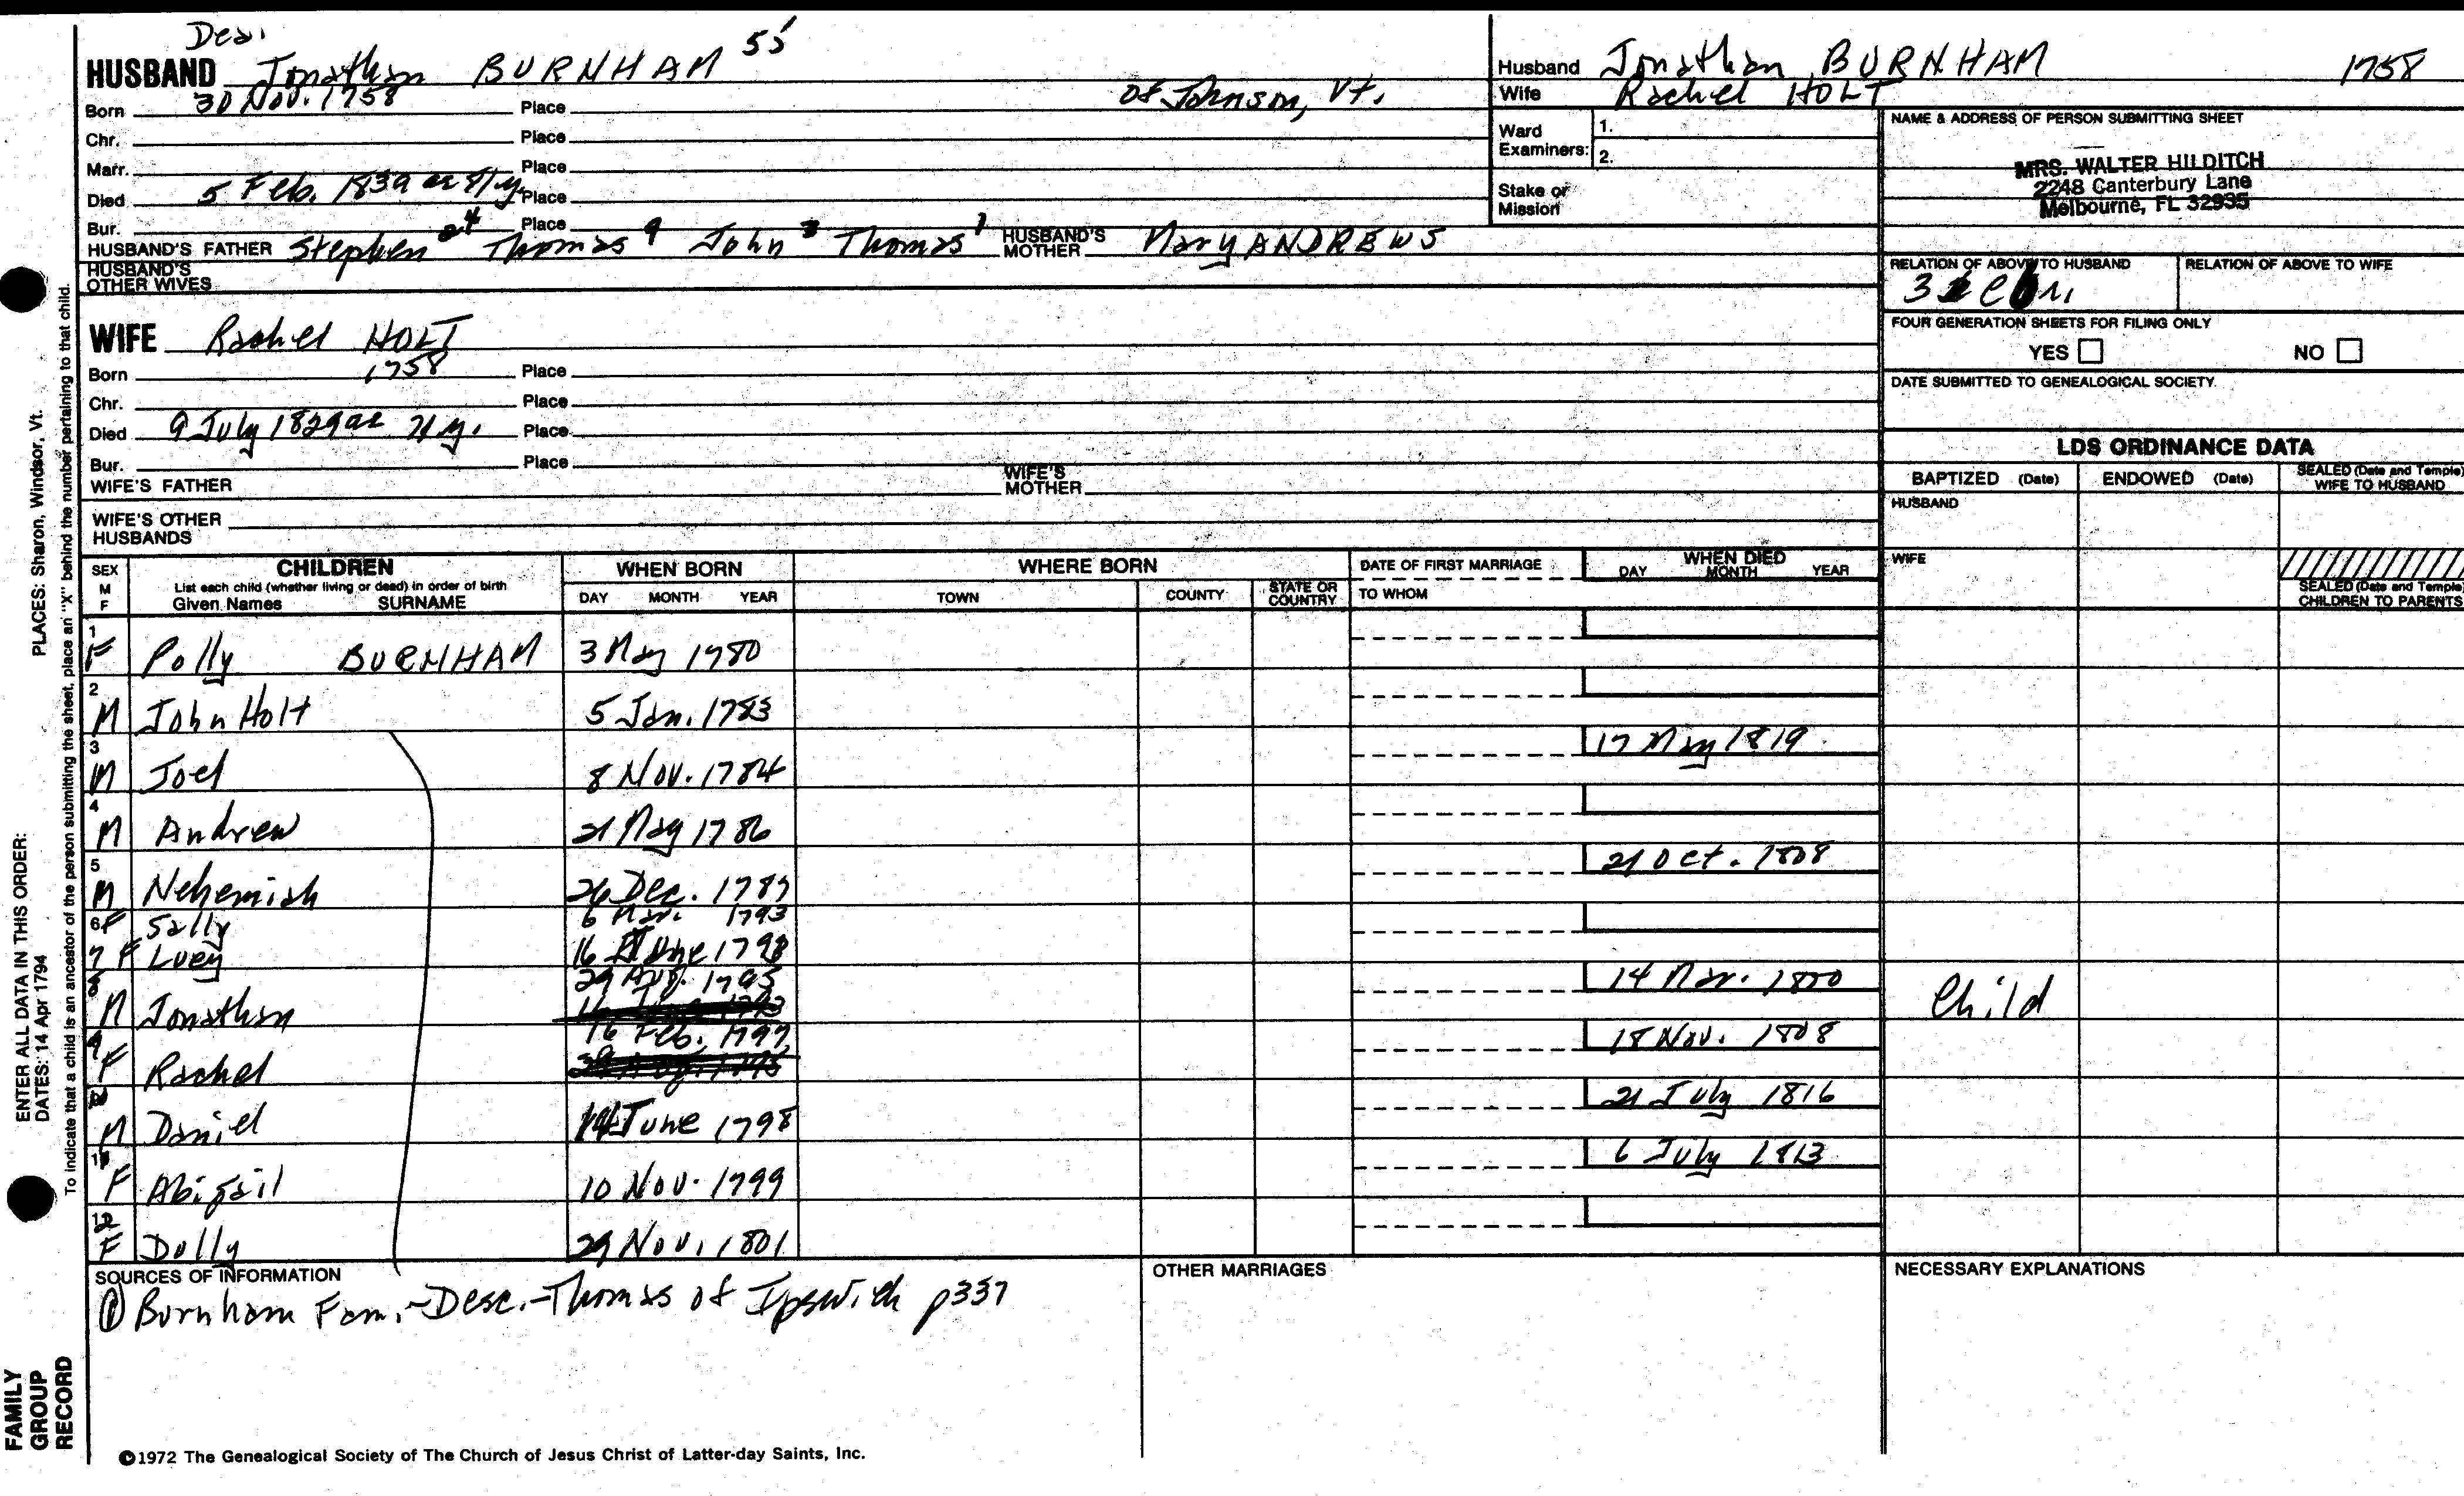 Dea.
HUSBAND Jonathan BURNHAM 55
Born 30 Nov. 1758 Place of Johnson, Vt.
Chr. Place
Marr. Place
Died 5 Feb. 1839 ae 81 y. Place
Bur. Place
HUSBAND'S FATHER Stephen 4 Thomas 9 John 3 Thomas 1 HUSBAND'S MOTHER Mary ANDREWS
HUSBAND'S OTHER WIVES
Husband Jonathan BURNHAM 1758
Wife Rachel HOLT
Ward Examiners: 1.
2.
Stake or Mission
NAME & ADDRESS OF PERSON SUBMITTING SHEET
MRS. WALTER HILDITCH
2248 Canterbury Lane
Melbourne, FL 32935
RELATION OF ABOVE TO HUSBAND RELATION OF ABOVE TO WIFE
FOUR GENERATION SHEETS FOR FILING ONLY
YES NO
DATE SUBMITTED TO GENEALOGICAL SOCIETY
WIFE Rachel HOLT
Born 1758 Place
Chr. Place
Died 9 July 1829 ae 71 y. Place
Bur. Place
WIFE'S FATHER WIFE'S MOTHER
WIFE'S OTHER HUSBANDS
LDS ORDINANCE DATA
BAPTIZED (Date) ENDOWED (Date) SEALED (Date and Temple) WIFE TO HUSBAND
HUSBAND
WIFE
SEALED (Date and Temple) CHILDREN TO PARENTS
SEX M F
CHILDREN
List each child (whether living or dead) in order of birth
Given Names SURNAME
WHEN BORN
DAY MONTH YEAR
WHERE BORN
TOWN COUNTY STATE OR COUNTRY
DATE OF FIRST MARRIAGE
TO WHOM
WHEN DIED
DAY MONTH YEAR
1 F Polly BURNHAM 3 May 1780
2 M John Holt 5 Jan. 1783
3 M Joel 8 Nov. 1784 17 May 1819
4 M Andrew 21 May 1786
5 M Nehemiah 26 Dec. 1787 21 Oct. 1808
6 F Sally 6 Mar. 1793
7 F Lucy 16 June 1798
8 M Jonathan 29 Aug. 1795 14 Mar. 1800 Child
9 F Rachel 16 Feb. 1797 18 Nov. 1808
10 M Daniel 14 June 1798 21 July 1816
11 F Abigail 10 Nov. 1799 6 July 1813
12 F Dolly 29 Nov. 1801
SOURCES OF INFORMATION
① Burnham Fam.-Desc.-Thomas of Ipswich p337
OTHER MARRIAGES
NECESSARY EXPLANATIONS
©1972 The Genealogical Society of The Church of Jesus Christ of Latter-day Saints, Inc.
FAMILY
GROUP
RECORD
ENTER ALL DATA IN THIS ORDER:
DATES: 14 Apr 1794
PLACES: Sharon, Windsor, Vt.
To indicate that a child is an ancestor of the person submitting the sheet, place an "X" behind the number pertaining to that child.